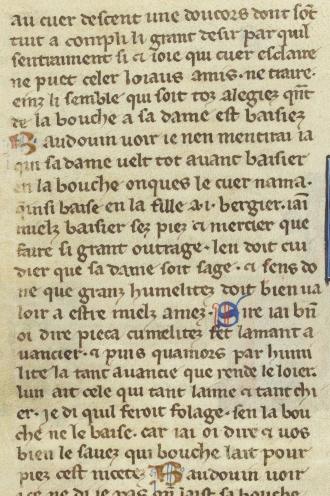 au cuer descent une doucors dont sōt
tuit acompli li grant desir par quil
sentraiment si ci ioie qui cuer esclaire
ne puet celer loiaus amis ne traire.
einz li semble qui soit toz alegiez qn̄t
de la bouche a sa dame est baisiez
Baudouin voir ie nen mentirai ia
qui sa dame velt tot auant baisier
en la bouche onques le cuer nama.
quinsi baise en la fille a .i. bergier. iaī
mielz baisier sez piez ci mercier que
faire si grant outrage. len doit cui
dier que sa dame soit sage. ci sens do
ne que granz humelitez doit bien va
loir a estre mielz amez. Sire iai bn̄
oi dire pieca cumelitez fet lamant a
uancier. ci puis quamors par humi
lite la tant auancie que rende le loier.
lun ait cele qui tant laime ci tant chi
er. ie di quil feroit folage. sen la bou
che ne le baise. car iai oi dire ci vos
bien le sauez qui bouche lait pour
piez cest nicetez Baudouin voir